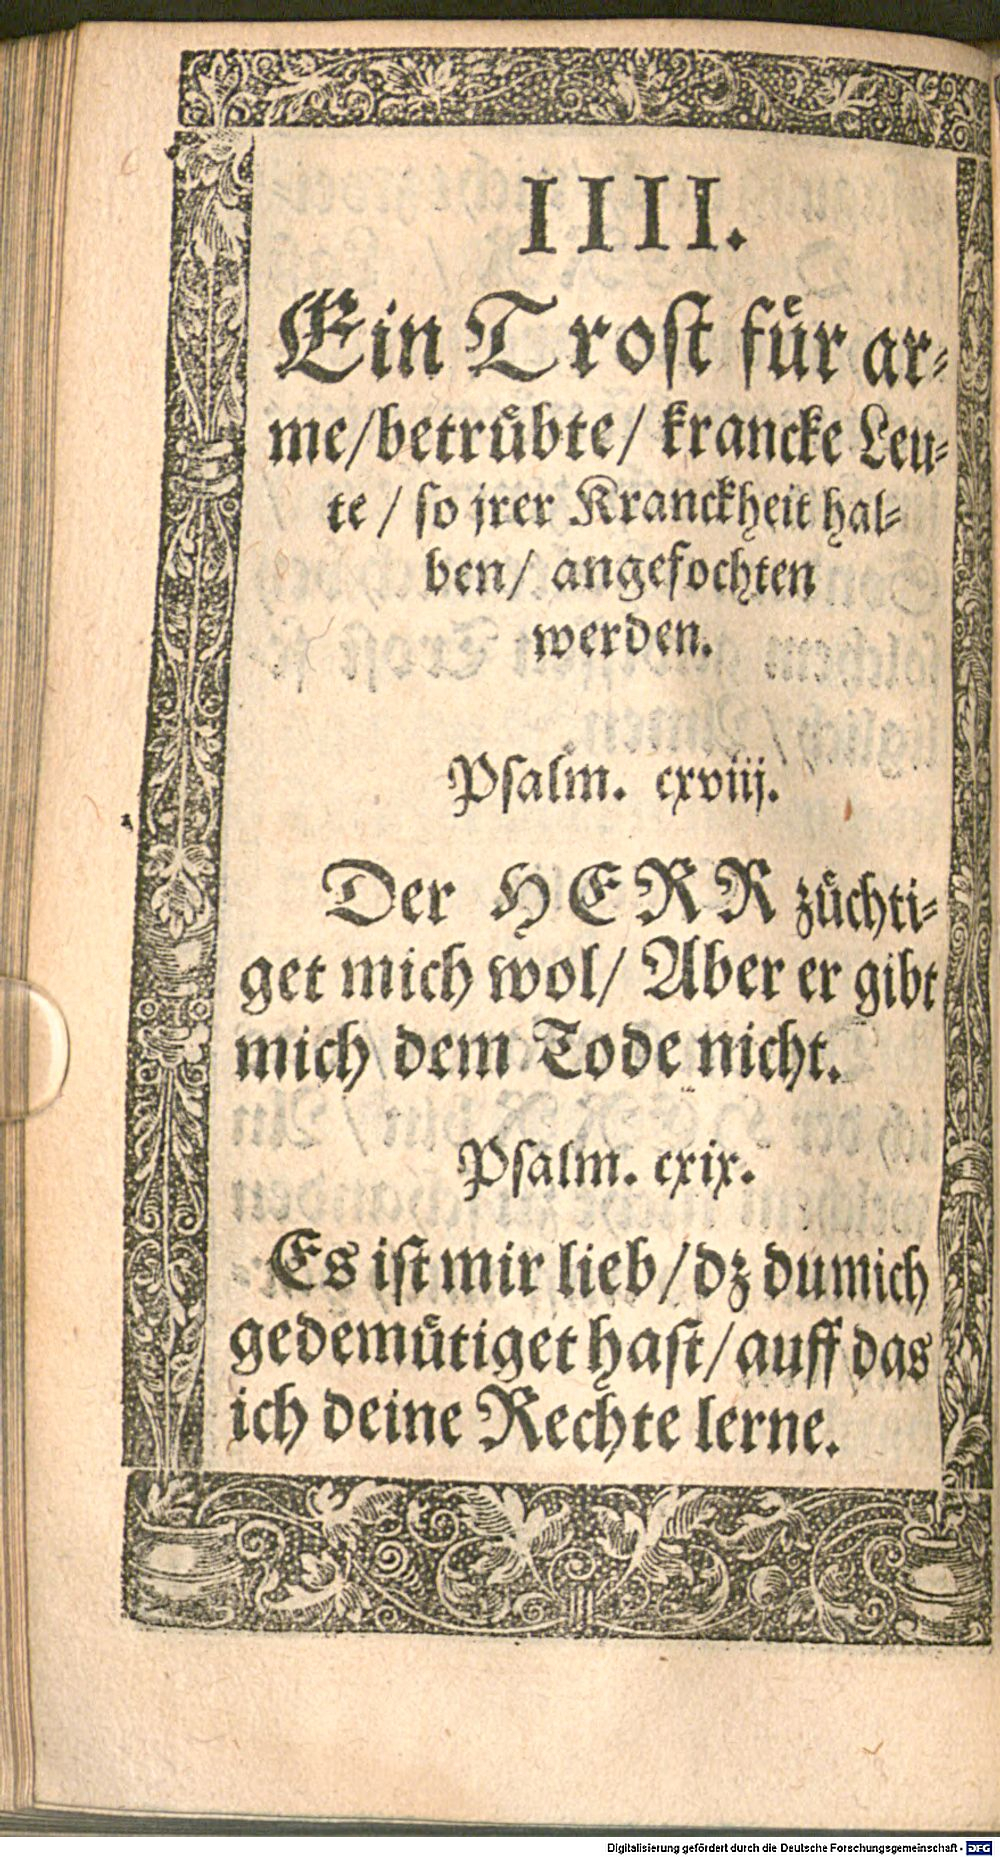 IIII.
Ein Trost fuͤr ar⸗
me/betruͤbte/ krancke Leu⸗
te / so jrer Kranckheit hal⸗
ben/ angefochten
werden.
Psalm. cxviij.
Der HERR zuͤchti⸗
get mich wol/ Aber er gibt
mich dem Tode nicht.
Psalm. cxix.
Es ist mir lieb/dz du mich
gedemuͤtiget hast/auff das
ich deine Rechte lerne.
Digitalisierung gefördert durch die Deutsche Forschungsgemeinschaft - DFG